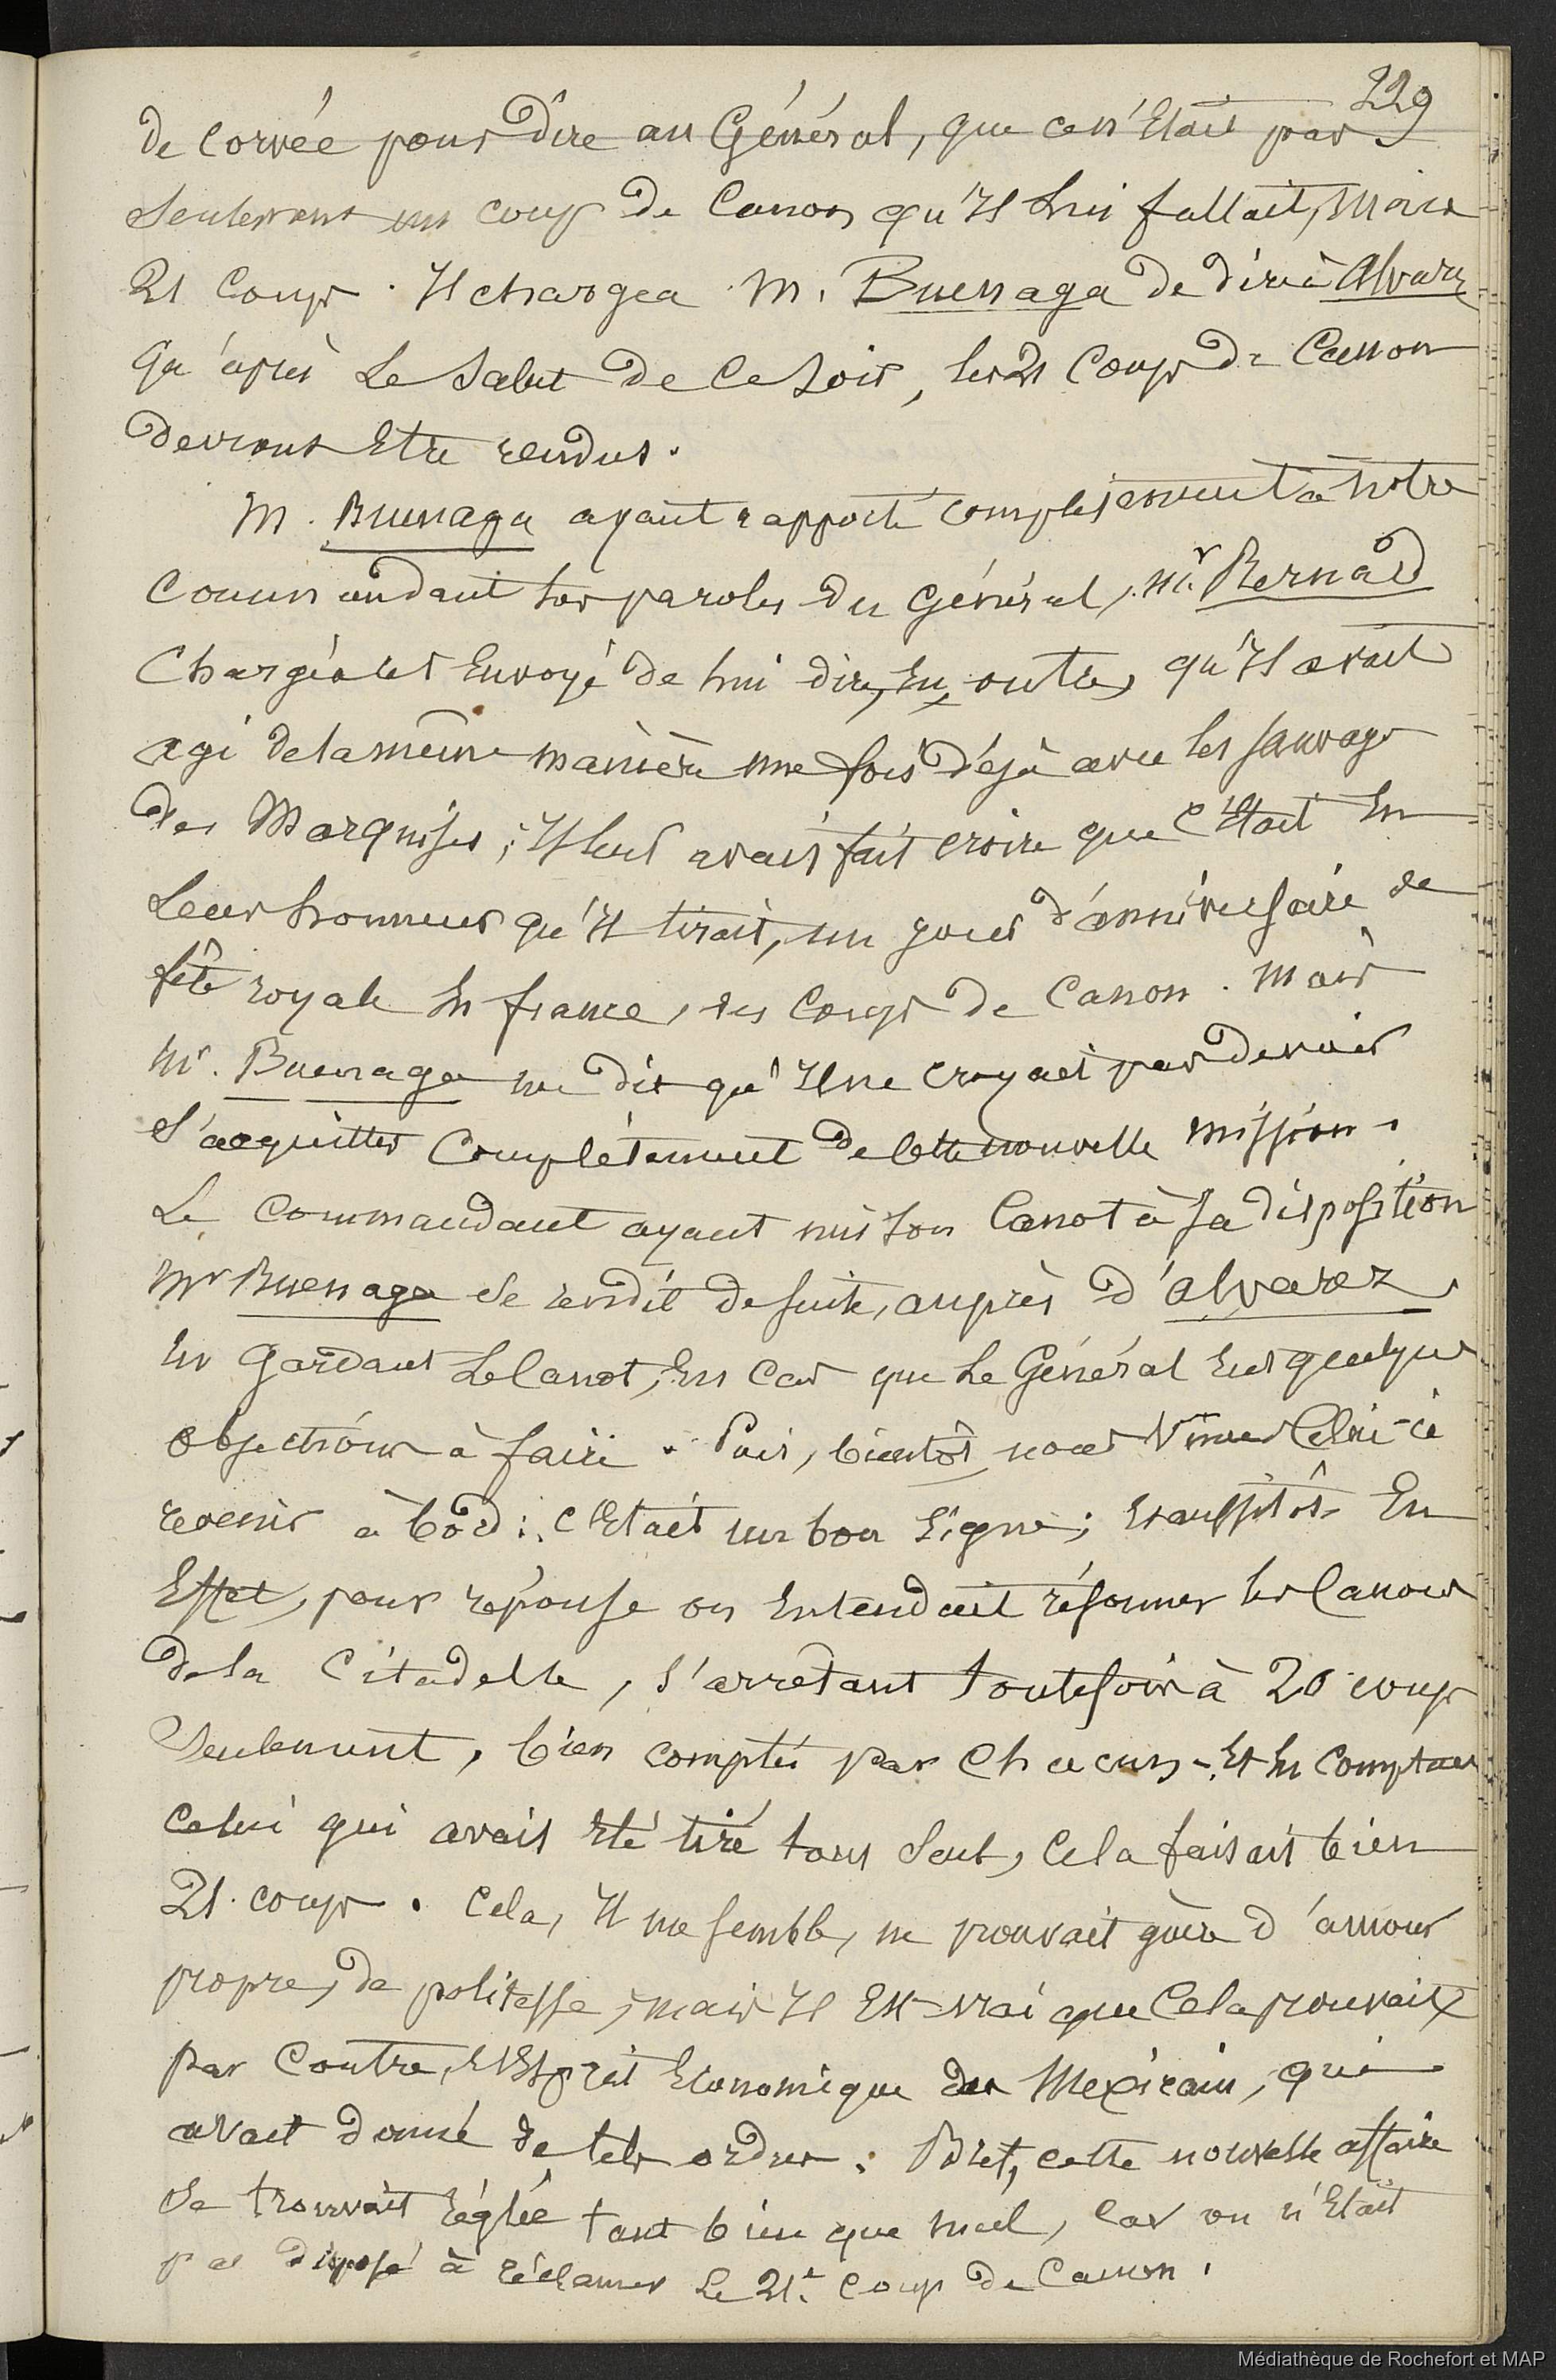 229
de corvée pour dire au Général, que ce n'Etait pas
seulement un coup de Canon qu'Il lui fallait, mais
21 Coups. Il chargea M. Buenaga de dire à Alvarez
qu'après le salut de ce soir, les 21 Coups de Canon
devront Etre rendus.
M. Buenaga ayant rapporté complèsement à notre
Commandant les paroles du Général, Mr Bernard
Chargea cet Envoyé de lui dire, En outre, qu'Il avait
agi de la même manière une fois déjà avec les sauvages
des Marquises; Il leur avait fait croire que c'Etait En
Leur honneur qu'Il tirait, un jour d'anniversaire de
fête royale En france, des Coups de Canon. Mais
Mr. Buenaga me dit qu'Il ne croyait pas devoir
s'acquitter Complètement de cette nouvelle mission.
Le Commandant ayant mis son Canot à sa disposition
Mr Buenaga se rendit de suite, auprès d'Alvarez,
En gardant Le Canot, En Cas que Le Général Eut quelques
objections à faire. Puis, bientôt, nous Vîmes Celui-ci
revenir à bord: c'Etait un bon signe; Et aussitôt En
Effet, pour réponse on Entendait résonner les Canons
de la Citadelle, s'arrêtant toutefois à 20 coups
seulement, bien comptés par Chacun. - Et En Comptant
Celui qui avait Eté tiré tout seul, Cela faisait bien
21 coups. Cela, Il me semble, ne prouvait guère d'amour
propre, de politesse, mais Il Est vrai que Cela prouvait
par Contre, l'Esprit Economique du Mexicain, qui
avait donné de tels ordres. Bref, cette nouvelle affaire
se trouvait réglée tant bien que mal, Car on n'Etait
pas disposé à réclamer Le 21e Coup de Canon.
Médiathèque de Rochefort et MAP